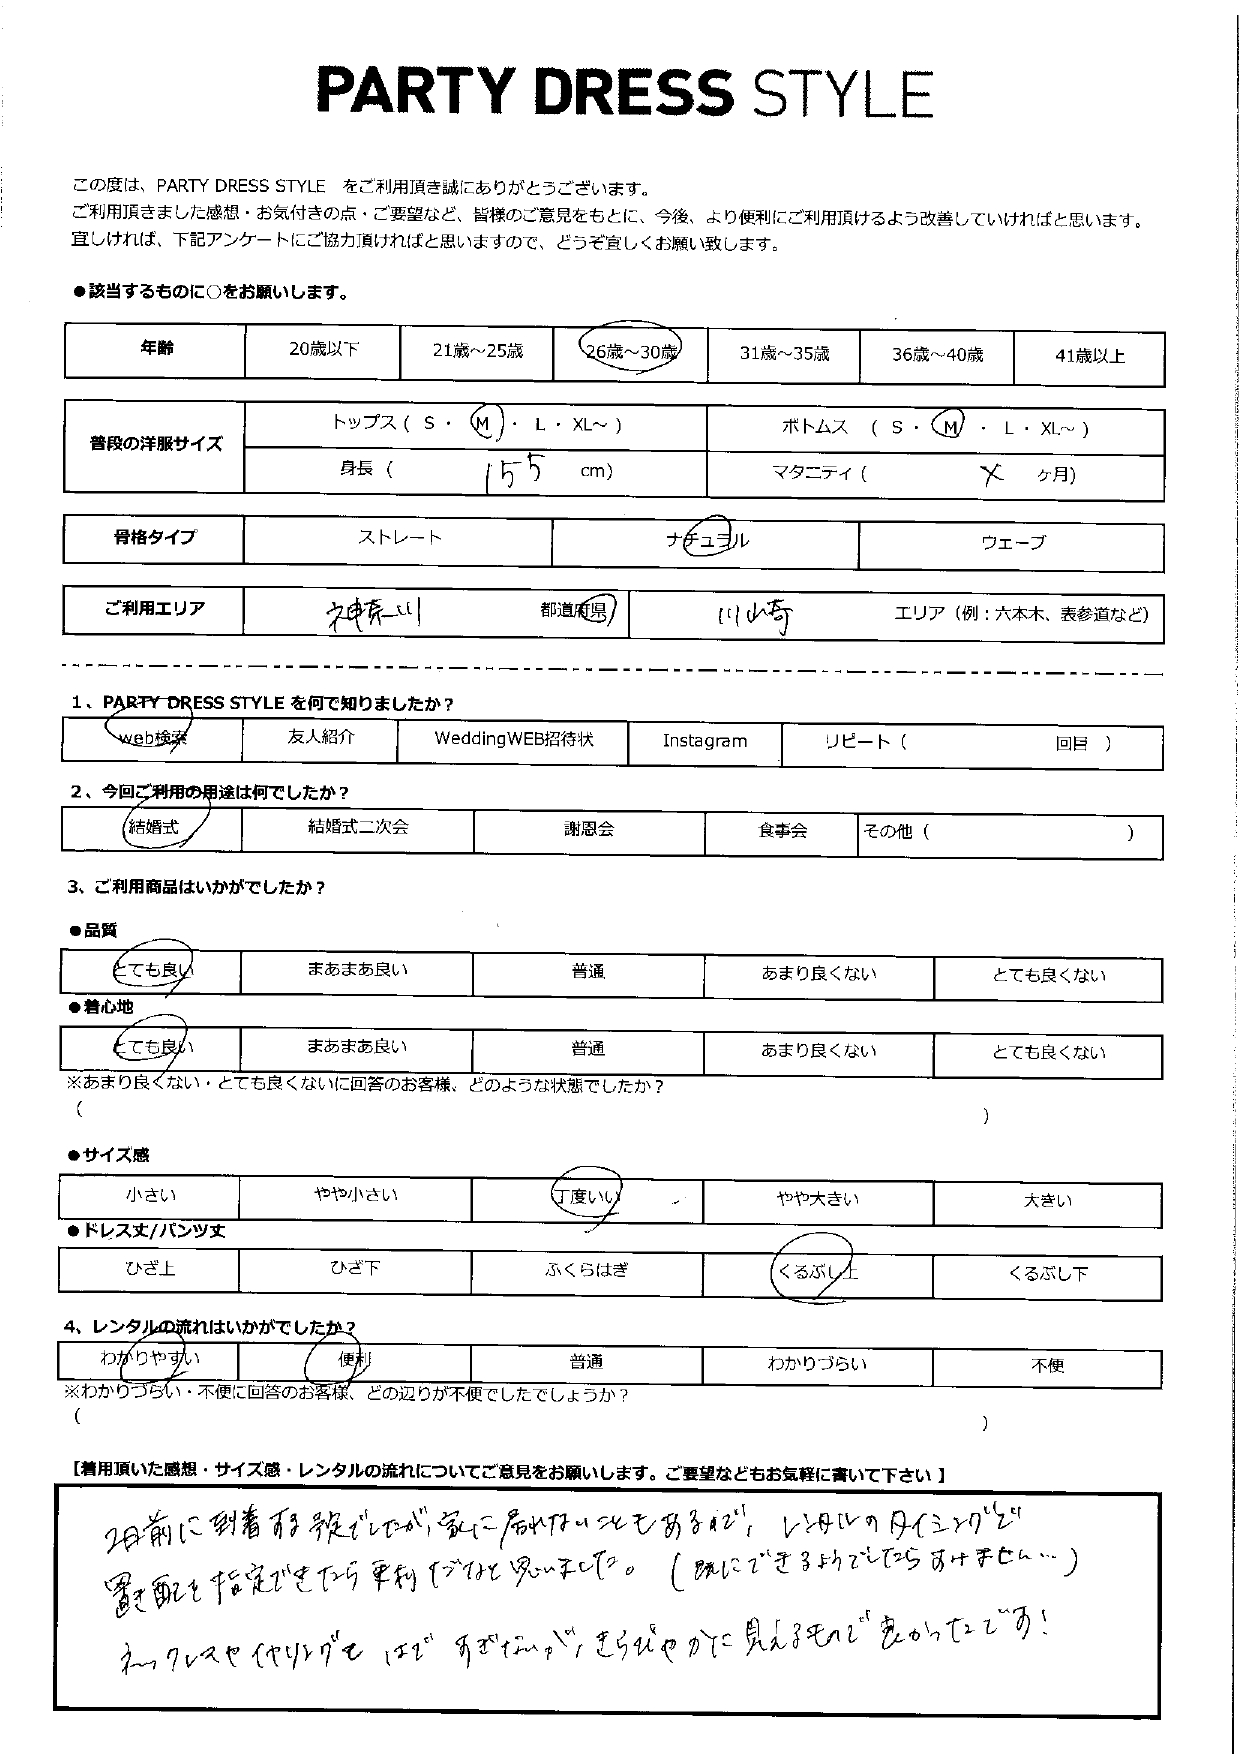 PARTY DRESS STYLE
この度は、PARTY DRESS STYLE をご利用頂き誠にありがとうございます。
ご利用頂きました感想・お気付きの点・ご要望など、皆様のご意見をもとに、今後、より便利にご利用頂けるよう改善していければと思います。
宜しければ、下記アンケートにご協力頂ければと思いますので、どうぞ宜しくお願い致します。
●該当するものに○をお願いします。
年齢 20歳以下 21歳～25歳 26歳～30歳 31歳～35歳 36歳～40歳 41歳以上
普段の洋服サイズ トップス ( S ・ M ・ L ・ XL～ ) ボトムス ( S ・ M ・ L ・ XL～ )
身長 ( 155 cm) マタニティ ( × ヶ月)
骨格タイプ ストレート ナチュラル ウェーブ
ご利用エリア 神奈川 都道府県 川崎 エリア（例：六本木、表参道など）
1、PARTY DRESS STYLE を何で知りましたか？
web検索 友人紹介 WeddingWEB招待状 Instagram リピート ( 回目 )
2、今回ご利用の用途は何でしたか？
結婚式 結婚式二次会 謝恩会 食事会 その他 ( )
3、ご利用商品はいかがでしたか？
●品質
とても良い まあまあ良い 普通 あまり良くない とても良くない
●着心地
とても良い まあまあ良い 普通 あまり良くない とても良くない
※あまり良くない・とても良くないに回答のお客様、どのような状態でしたか？
( )
●サイズ感
小さい やや小さい 丁度いい やや大きい 大きい
●ドレス丈/パンツ丈
ひざ上 ひざ下 ふくらはぎ くるぶし上 くるぶし下
4、レンタルの流れはいかがでしたか？
わかりやすい 便利 普通 わかりづらい 不便
※わかりづらい・不便に回答のお客様、どの辺りが不便でしたでしょうか？
( )
【着用頂いた感想・サイズ感・レンタルの流れについてご意見をお願いします。ご要望などもお気軽に書いて下さい 】
2日前に到着する予定でしたが、家に居れないこともあるので、レンタルのタイミングで
置き配を指定できたら便利だなと思いました。(既にできるようでしたらすみません…)
ネックレスやイヤリングも はですぎないが、きらびやかに見えるもので良かったです！